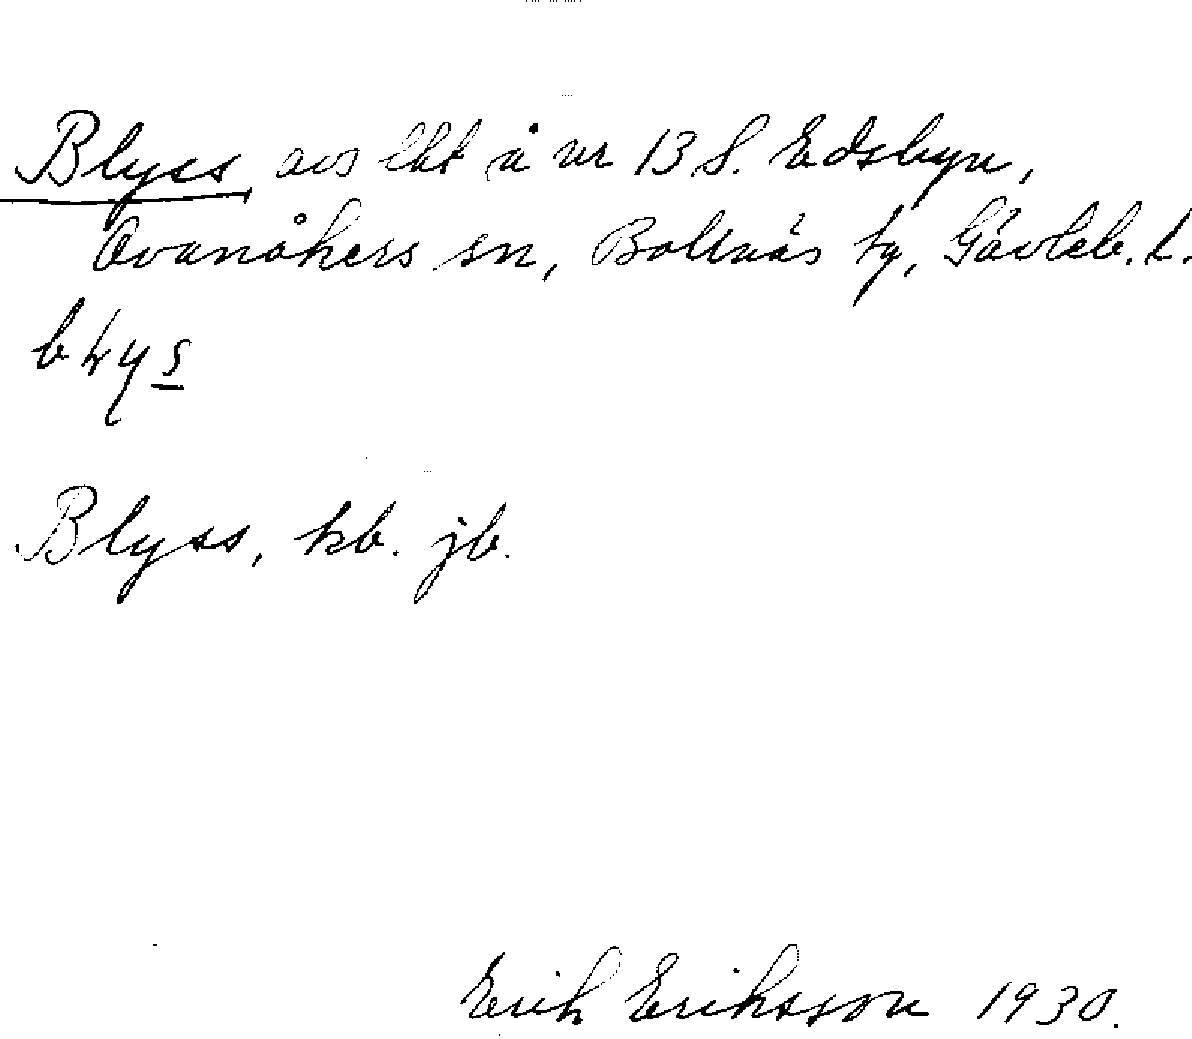 Blyss, avs lht å nr 13 S. Edsbyn,
Ovanåkers sn, Bollnäs tg, Gävleb. l.
Blyss, kb. jb.
Erik Eriksson 1930.